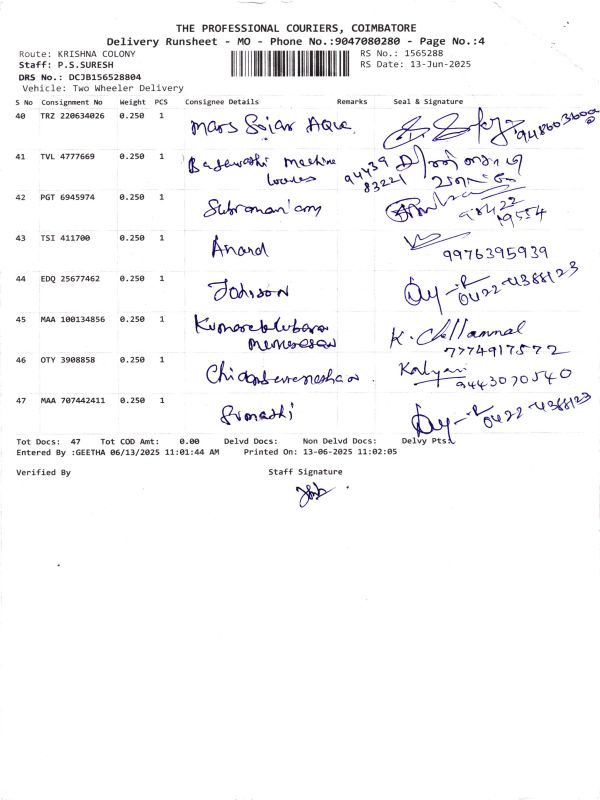 THE PROFESSIONAL COURIERS, COIMBATORE
Delivery Runsheet - MO - Phone No.:9047080280 - Page No.:4
Route: KRISHNA COLONY RS No.: 1565288
Staff: P.S.SURESH RS Date: 13-Jun-2025
DRS No.: DCJB156528804
Vehicle: Two Wheeler Delivery
S No Consignment No Weight PCS Consignee Details Remarks Seal & Signature
40 TRZ 220634026 0.250 1 Mars Solar Aqua 9486036000
41 TVL 4777669 0.250 1 Machine 94439
83221
42 PGT 6945974 0.250 1 Subramaniam 98422
19554
43 TSI 411700 0.250 1 Anand
9976395939
44 EDQ 25677462 0.250 1 0422-4388123
45 MAA 100134856 0.250 1 K. Chellammal
7774917572
46 OTY 3908858 0.250 1 Kalyani
9443070540
47 MAA 707442411 0.250 1 0422-4388123
Tot Docs: 47 Tot COD Amt: 0.00 Delvd Docs: Non Delvd Docs: Delvy Pts:
Entered By :GEETHA 06/13/2025 11:01:44 AM Printed On: 13-06-2025 11:02:05
Verified By Staff Signature